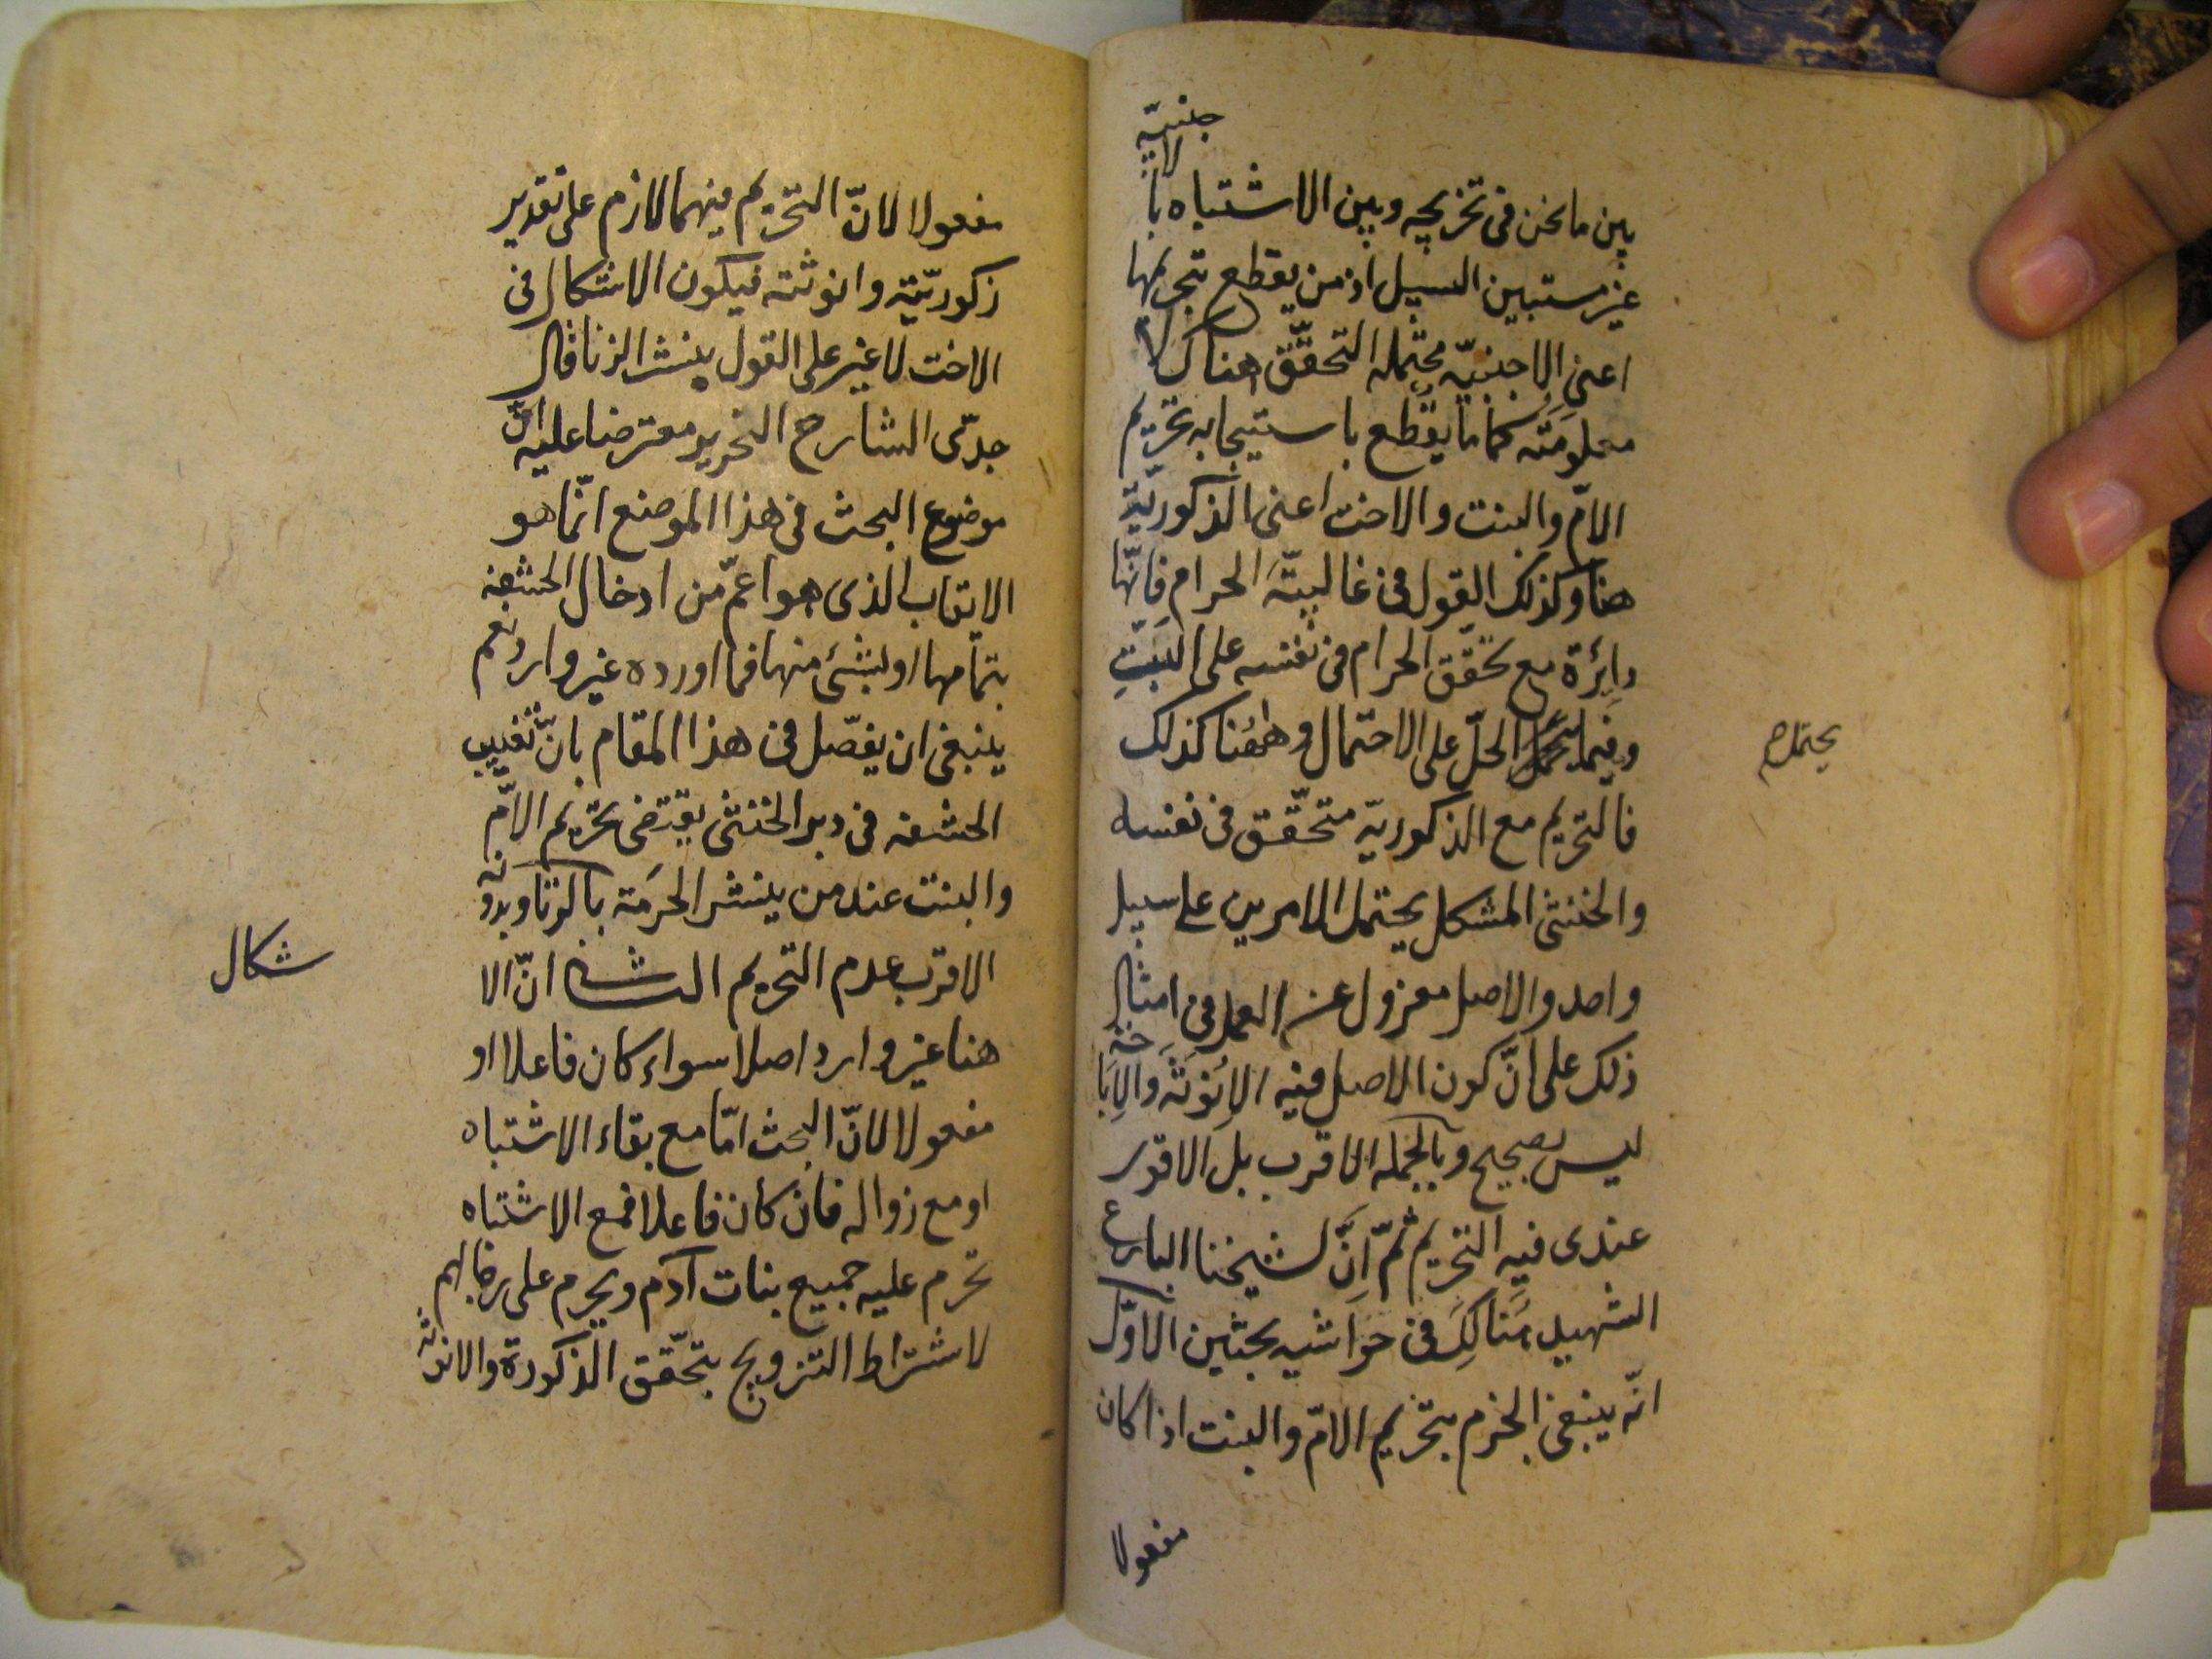 بين ما نحن فى تخريجه وبين الاشتباه بالاجنبيّه
غير مستبين السبيل اذ من يقطع بتحريمها
اعنى الاجنبيّه محتمله التحقّق هناك لا
معلومته كما ما يقطع باستيجابه تحريم
الامّ والبنت والاخت اعنى الذكوريّة
هنا وكذلك القول فى غالبيّة الحرام فانّها
دائرة مع تحقّق الحرام فى نفسه على البتّ
وفيما يحتمل الحلّ على الاحتمال وههنا كذلك
يحتمل صح
فالتحريم مع الذكوريّة متحقّق فى نفسه
والخنثى المشكل يحتمل الامرين على سبيل
واحد والاصل معزول عن العمل فى امثال
ذلك على انّ كون الاصل فيه الانوثة والاباحة
ليس بصحيح وبالجمله الاقرب بل الاقوى
عندى فيه التحريم ثمّ انّ لشيخنا البارع
الشهيد هنالك فى حواشيه بحثين الاوّل
انّه ينبغى الجزم بتحريم الامّ والبنت اذا كان
مفعولا
مفعولا لانّ التحريم فيهما لازم على تقدير
ذكوريّته وانوثته فيكون الاشكال فى
الاخت لا غير على القول بنشر الزنا قال
جدّى الشارح النحرير معترضا عليه انّ
موضوع البحث فى هذا الموضع انّما هو
الايقاب الذى هو اعمّ من ادخال الحشفه
بتمامها او بشئ منها فما اورده غير وارد نعم
ينبغى ان يفصّل فى هذا المقام بانّ تغييب
الحشفه فى دبر الخنثى يقتضى تحريم الامّ
والبنت عند من ينشر الحرمة بالزنا وبدونه
الاقرب عدم التحريم الثانى انّ الا
شكال
هنا غير وارد اصلا سواء كان فاعلا او
مفعولا لانّ البحث امّا مع بقاء الاشتباه
او مع زواله فان كان فاعلا فمع الاشتباه
تحرم عليه جميع بنات آدم ويحرم على رجالهم
لاشتراط التزويج بتحقّق الذكورة والانوثة